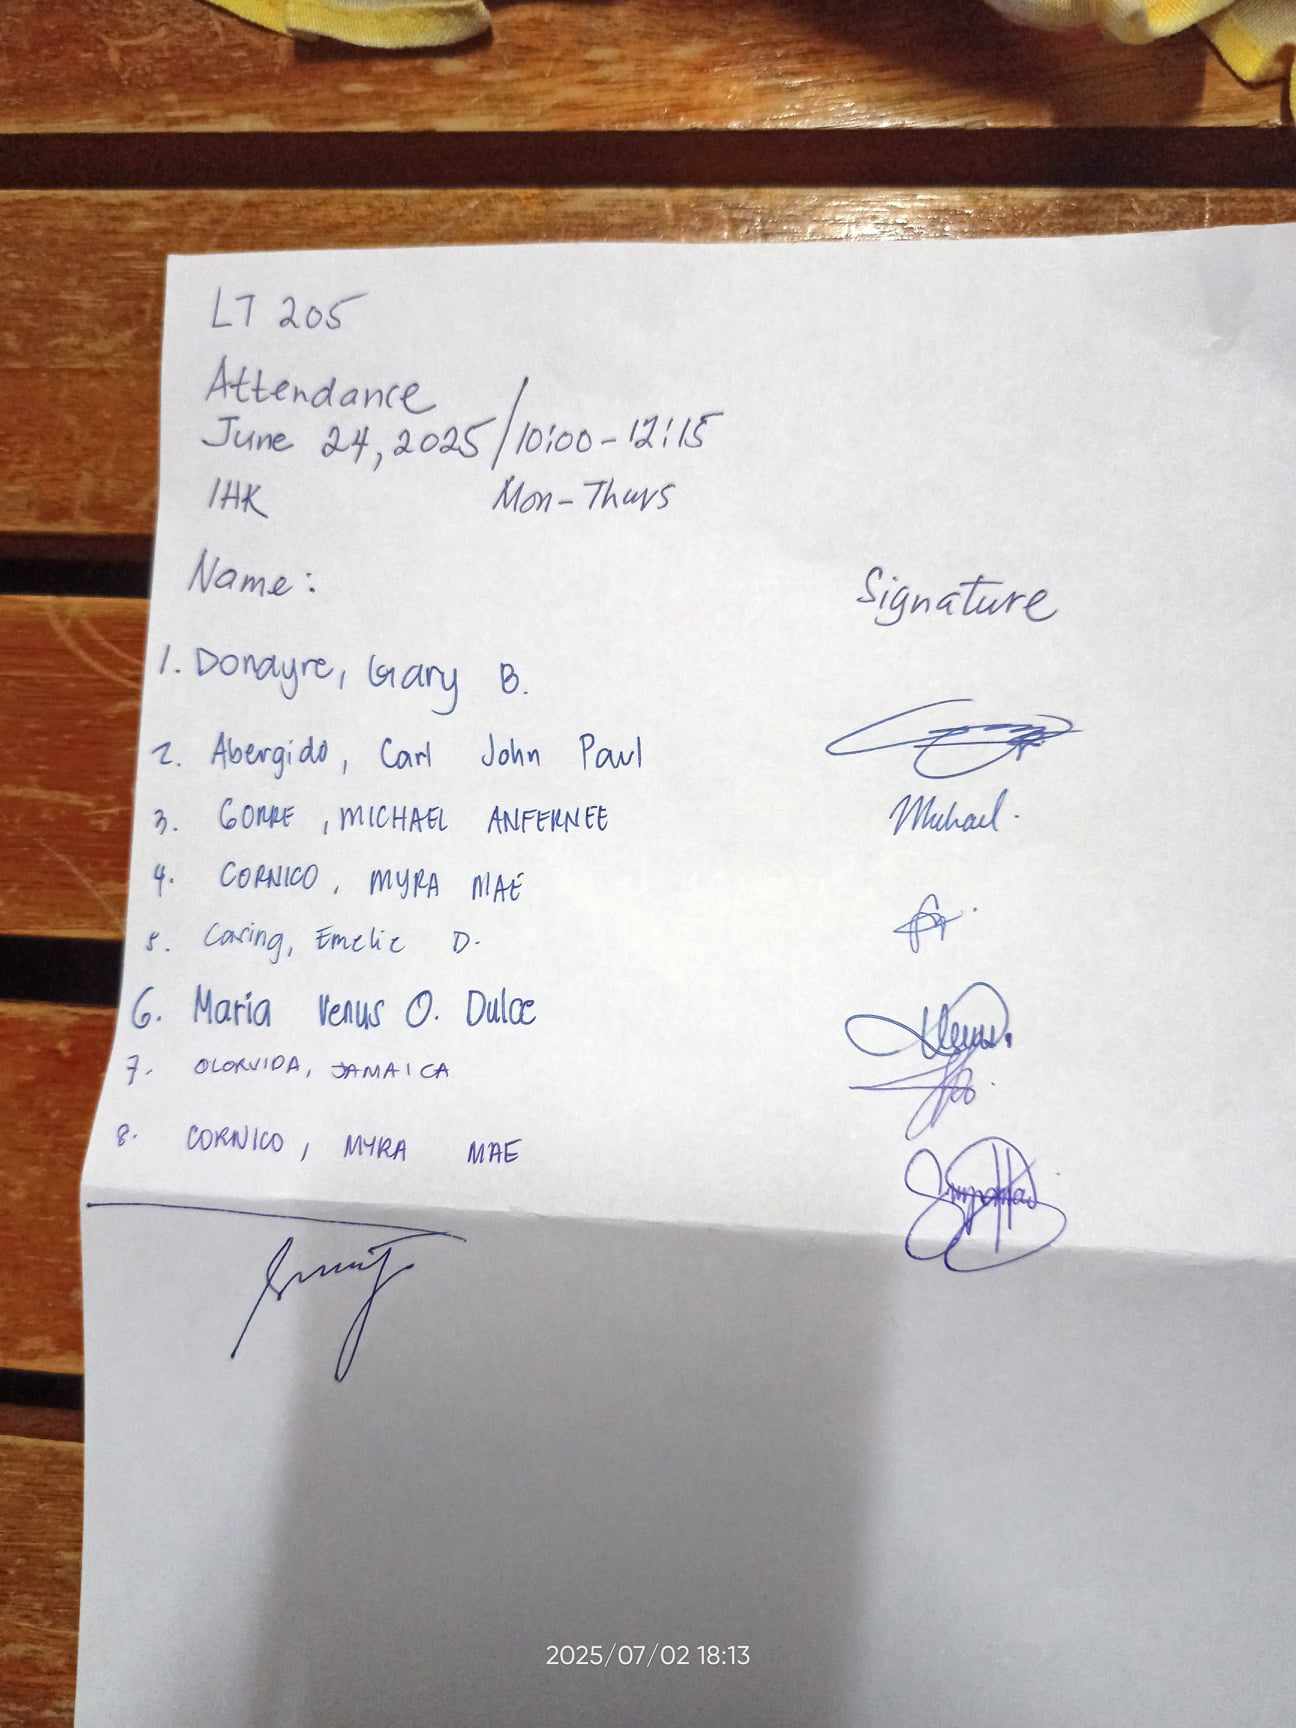 LT 205
Attendance
June 24, 2025 / 10:00 - 12:15
IHK Mon - Thurs
Name: Signature
1. Donayre, Gary B.
2. Abergido, Carl John Paul
3. GORRE, MICHAEL ANFERNEE Michael.
4. CORNICO, MYRA MAE
5. Caring, Emelie D.
6. Maria Venus O. Dulce
7. OLORVIDA, JAMAICA
8. CORNICO, MYRA MAE
2025/07/02 18:13